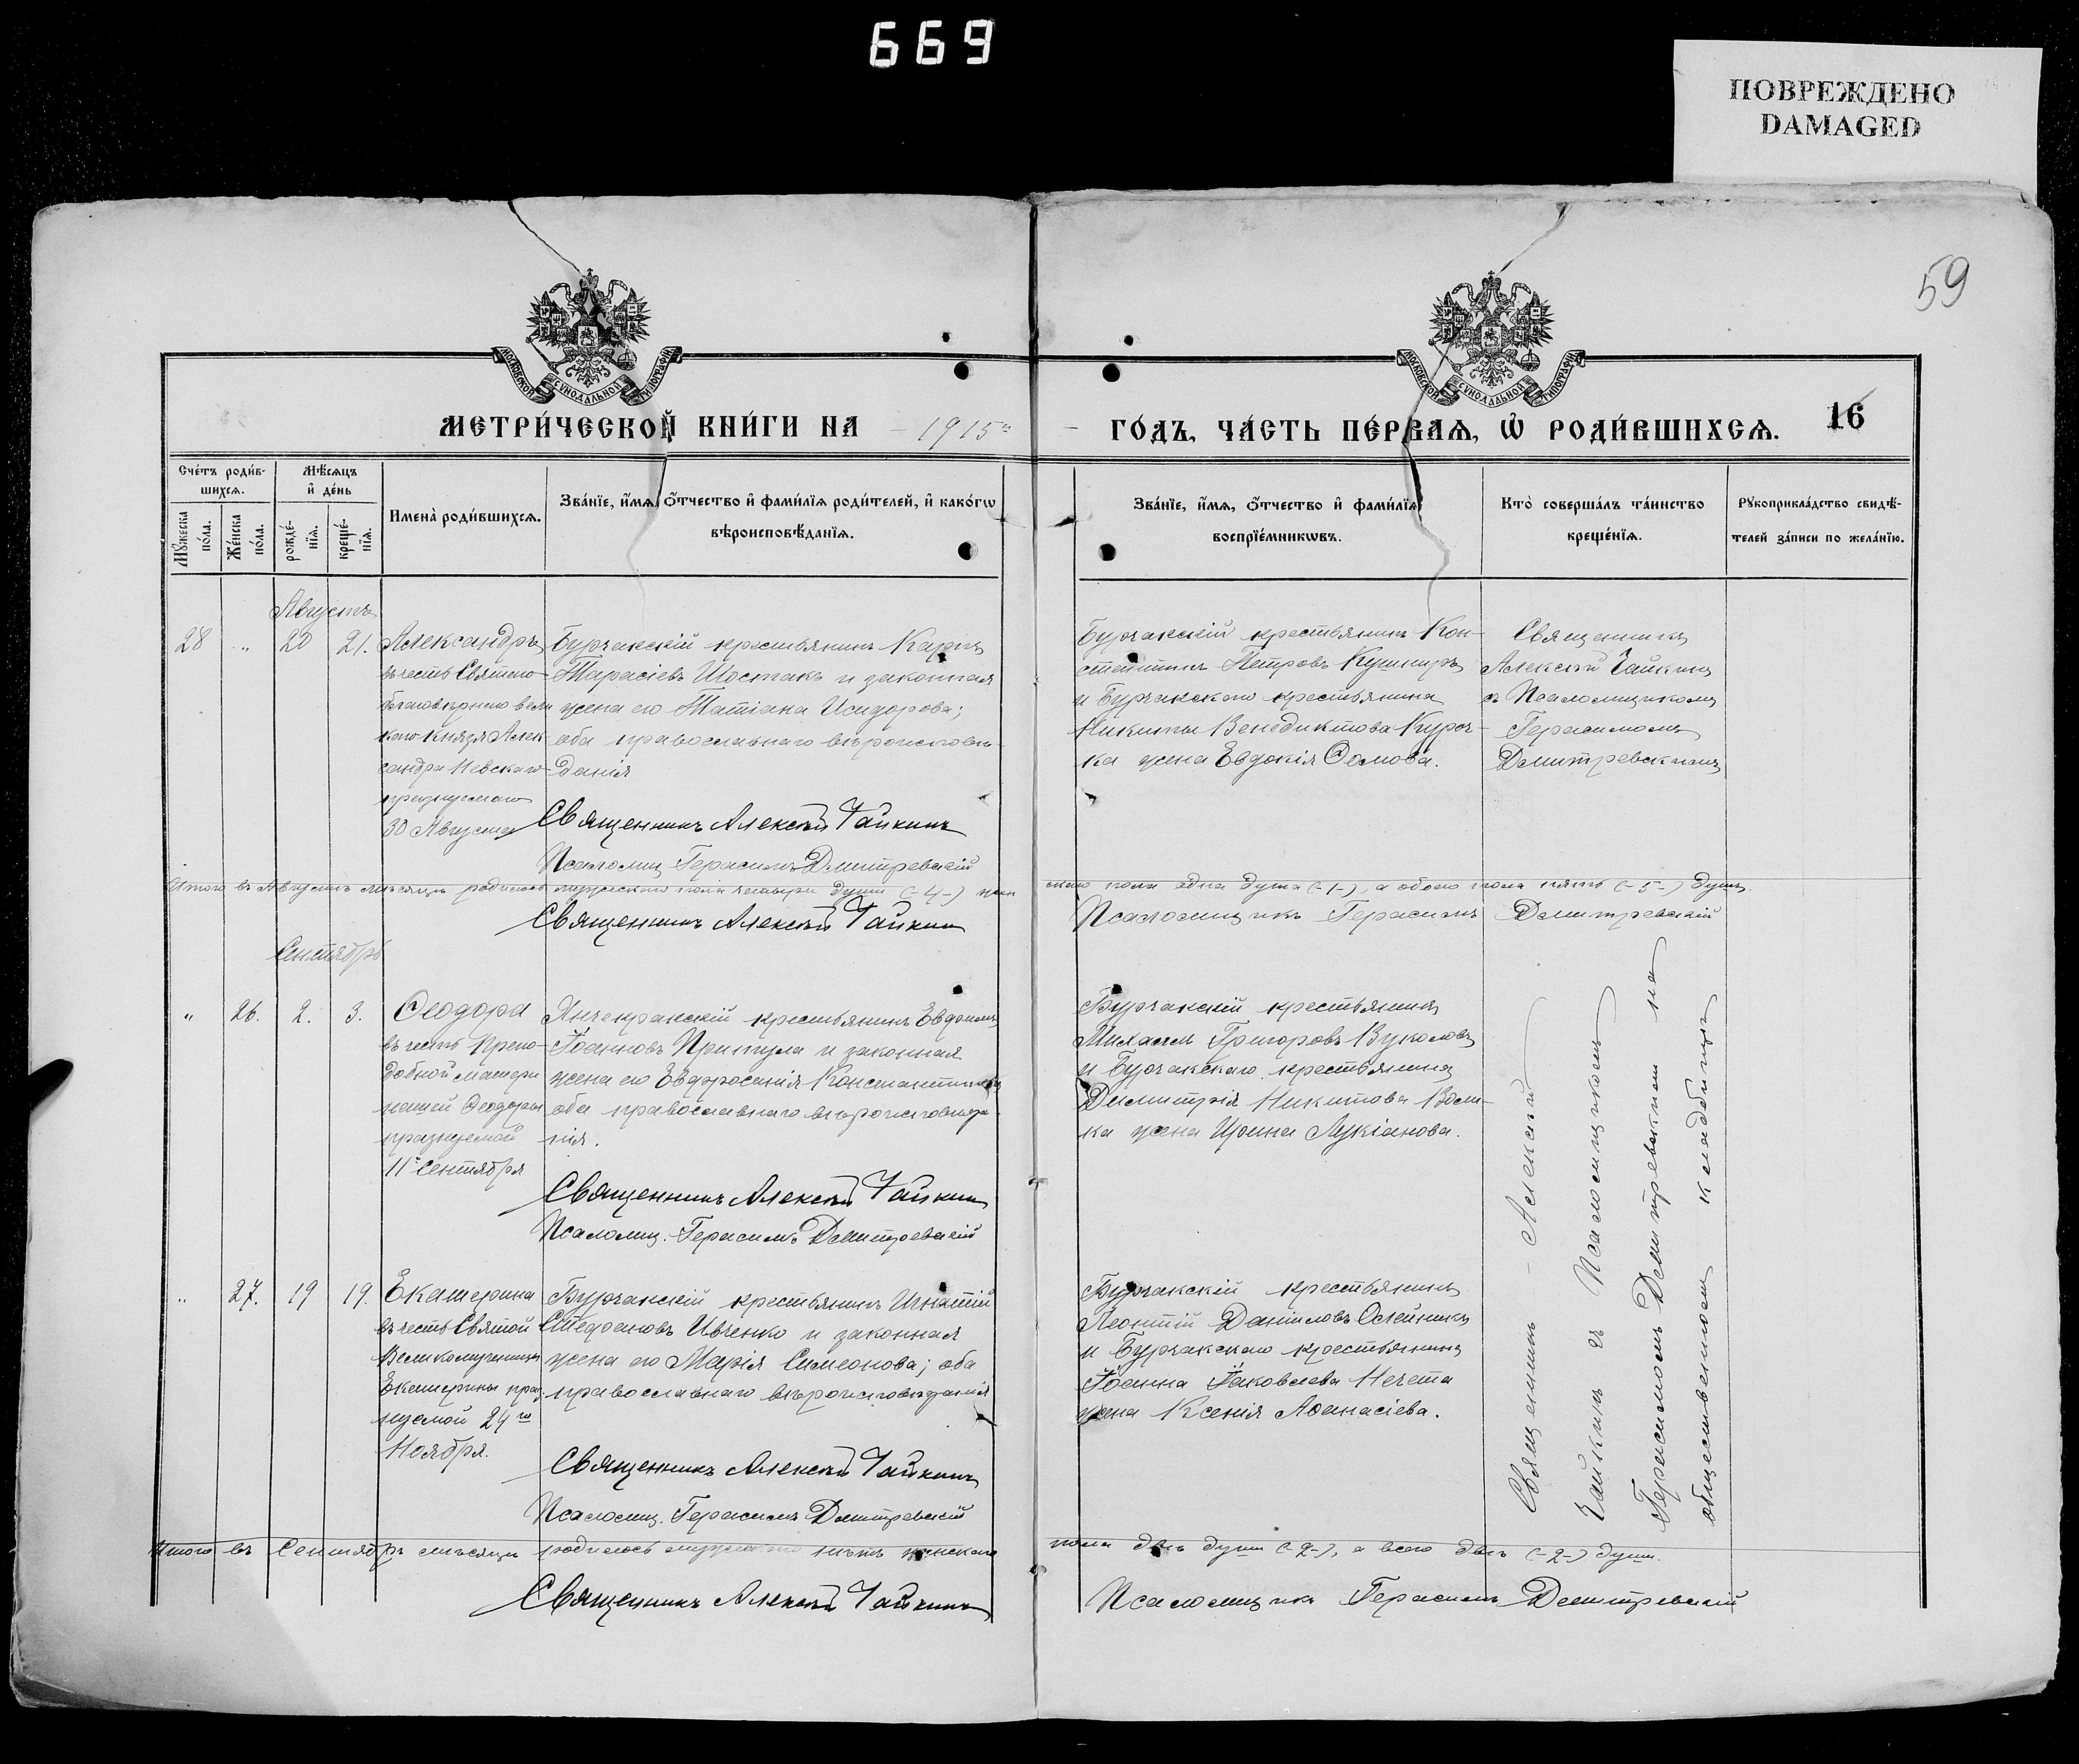 669
ПОВРЕЖДЕНО
DAMAGED
59
МОСКОВСКОЙ СѴНОДАЛЬНОЙ ТИПОГРАФІИ
МОСКОВСКОЙ СѴНОДАЛЬНОЙ ТИПОГРАФІИ
МЕТРИ́ЧЕСКОЙ КНИ́ГИ НА 1915 го
ГО́ДЪ, ЧА́СТЬ ПЕ́РВАѦ, Ѡ҆ РОДИ́ВШИХСѦ. 16
Сче́тъ роди́в-
шихсѧ.
Мѣ́сѧцъ
и҆ де́нь
Мꙋ́жеска по́ла.
Же́нска по́ла.
рожде́-
нїѧ.
креще́-
нїѧ.
Имена̀ роди́вшихсѧ.
Зва́нїе, и҆́мѧ, о҆́тчество и҆ фами́лїѧ роди́телей, и҆ како́гѡ
вѣроисповѣ́данїѧ.
Зва́нїе, и҆́мѧ, о҆́тчество и҆ фами́лїѧ
воспрїе́мникѡвъ.
Кто̀ соверша́лъ та́инство
креще́нїѧ.
Рꙋкоприкла́дство свидѣ́-
телей за́писи по жела́нїю.
Августъ
28 " 20 21.
Александръ
въ честь Святаго
благовѣрнаго вели
каго Князя Алек-
сандра Невскаго
празнуемаго
30 Августа
Бурчакскій крестьянинъ Карпъ
Тарасіевъ Шостакъ и законная
жена его Татіана Исидорова;
оба православнаго вѣроисповѣ-
данія
Священникъ Алексѣй Чайкинъ
Псаломщ. Герасимъ Дмитревскій
Бурчакскій крестьянинъ Кон-
стантинъ Петровъ Кушниръ
и Бурчакскаго крестьянина
Никиты Венедиктова Куроч-
ка жена Евдокія Ѳомова.
Священникъ
Алексѣй Чайкинъ
съ Псаломщикомъ
Герасимомъ
Дмитревскимъ
Итого въ Августѣ мѣсяцѣ родилось мужескаго пола четыри души (-4-) жен
скаго пола одна душа (-1-), а обоего пола пять (-5-) душъ.
Священникъ Алексѣй Чайкинъ
Псаломщикъ Герасимъ Дмитревскій
Сентябрь
" 26. 2. 3.
Ѳеодора
въ честь Препо-
добной матери
нашей Ѳеодоры
празнуемой
11го Сентября
Янчекракскій крестьянинъ Евдокимъ
Іоанновъ Притула и законная
жена его Евфросинія Константинова
оба православнаго вѣроисповѣда-
нія.
Священникъ Алексѣй Чайкинъ
Псаломщ. Герасимъ Дмитревскій
Бурчакскій крестьянинъ
Михаилъ Григоровъ Вуколовъ
и Бурчакскаго крестьянина
Димитрія Никитова
жена Ирина Лукіанова.
Священникъ - Алексѣй
Чайкинъ съ Псаломщикомъ
Герасимомъ Дмитревскимъ на
общественномъ кладбищѣ
" 27. 19 19.
Екатерина
въ честь Святой
Великомученицы
Екатерины праз
нуемой 24го
Ноября.
Бурчакскій крестьянинъ Игнатій
Стефановъ Ивченко и законная
жена его Марія Симеонова; оба
православнаго вѣроисповѣданія
Священникъ Алексѣй Чайкинъ
Псаломщ. Герасимъ Дмитревскій
Бурчакскій крестьянинъ
Леонтій Даніиловъ Олейникъ
и Бурчакскаго крестьянина
Іоанна Іаковлева Нечета
жена Ксенія Аѳанасіева.
Итого въ Сентябрѣ мѣсяцѣ родилось мужескаго нѣтъ женскаго
пола двѣ души (-2-), а всего двѣ (-2-) души.
Священникъ Алексѣй Чайкинъ
Псаломщикъ Герасимъ Дмитревскій